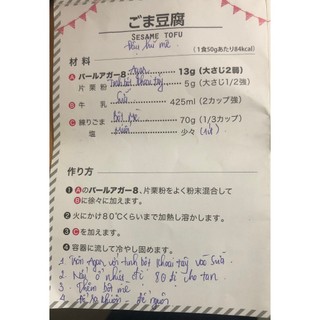 ごま豆腐
SESAME TOFU
Đậu hũ mè
(1食50gあたり84kcal)
材料
Ⓐ パールアガー8 Agar 13g (大さじ2弱)
片栗粉 Tinh bột khoai tây 5g (大さじ1/2強)
Ⓑ 牛乳 Sữa 425ml (2カップ強)
Ⓒ 練りごま Bột mè 70g (1/3カップ)
塩 muối 少々
作り方
❶ Ⓐのパールアガー8、片栗粉をよく粉末混合して
Ⓑに徐々に加えます。
❷ 火にかけ80℃くらいまで加熱し溶かします。
❸ Ⓒを加えます。
❹ 容器に流して冷やし固めます。
1 Agar với tinh bột khoai tây vào sữa
2 Nấu ở nhiệt độ 80 cho tan
3 Thêm bột mè
4 khuôn để nguội